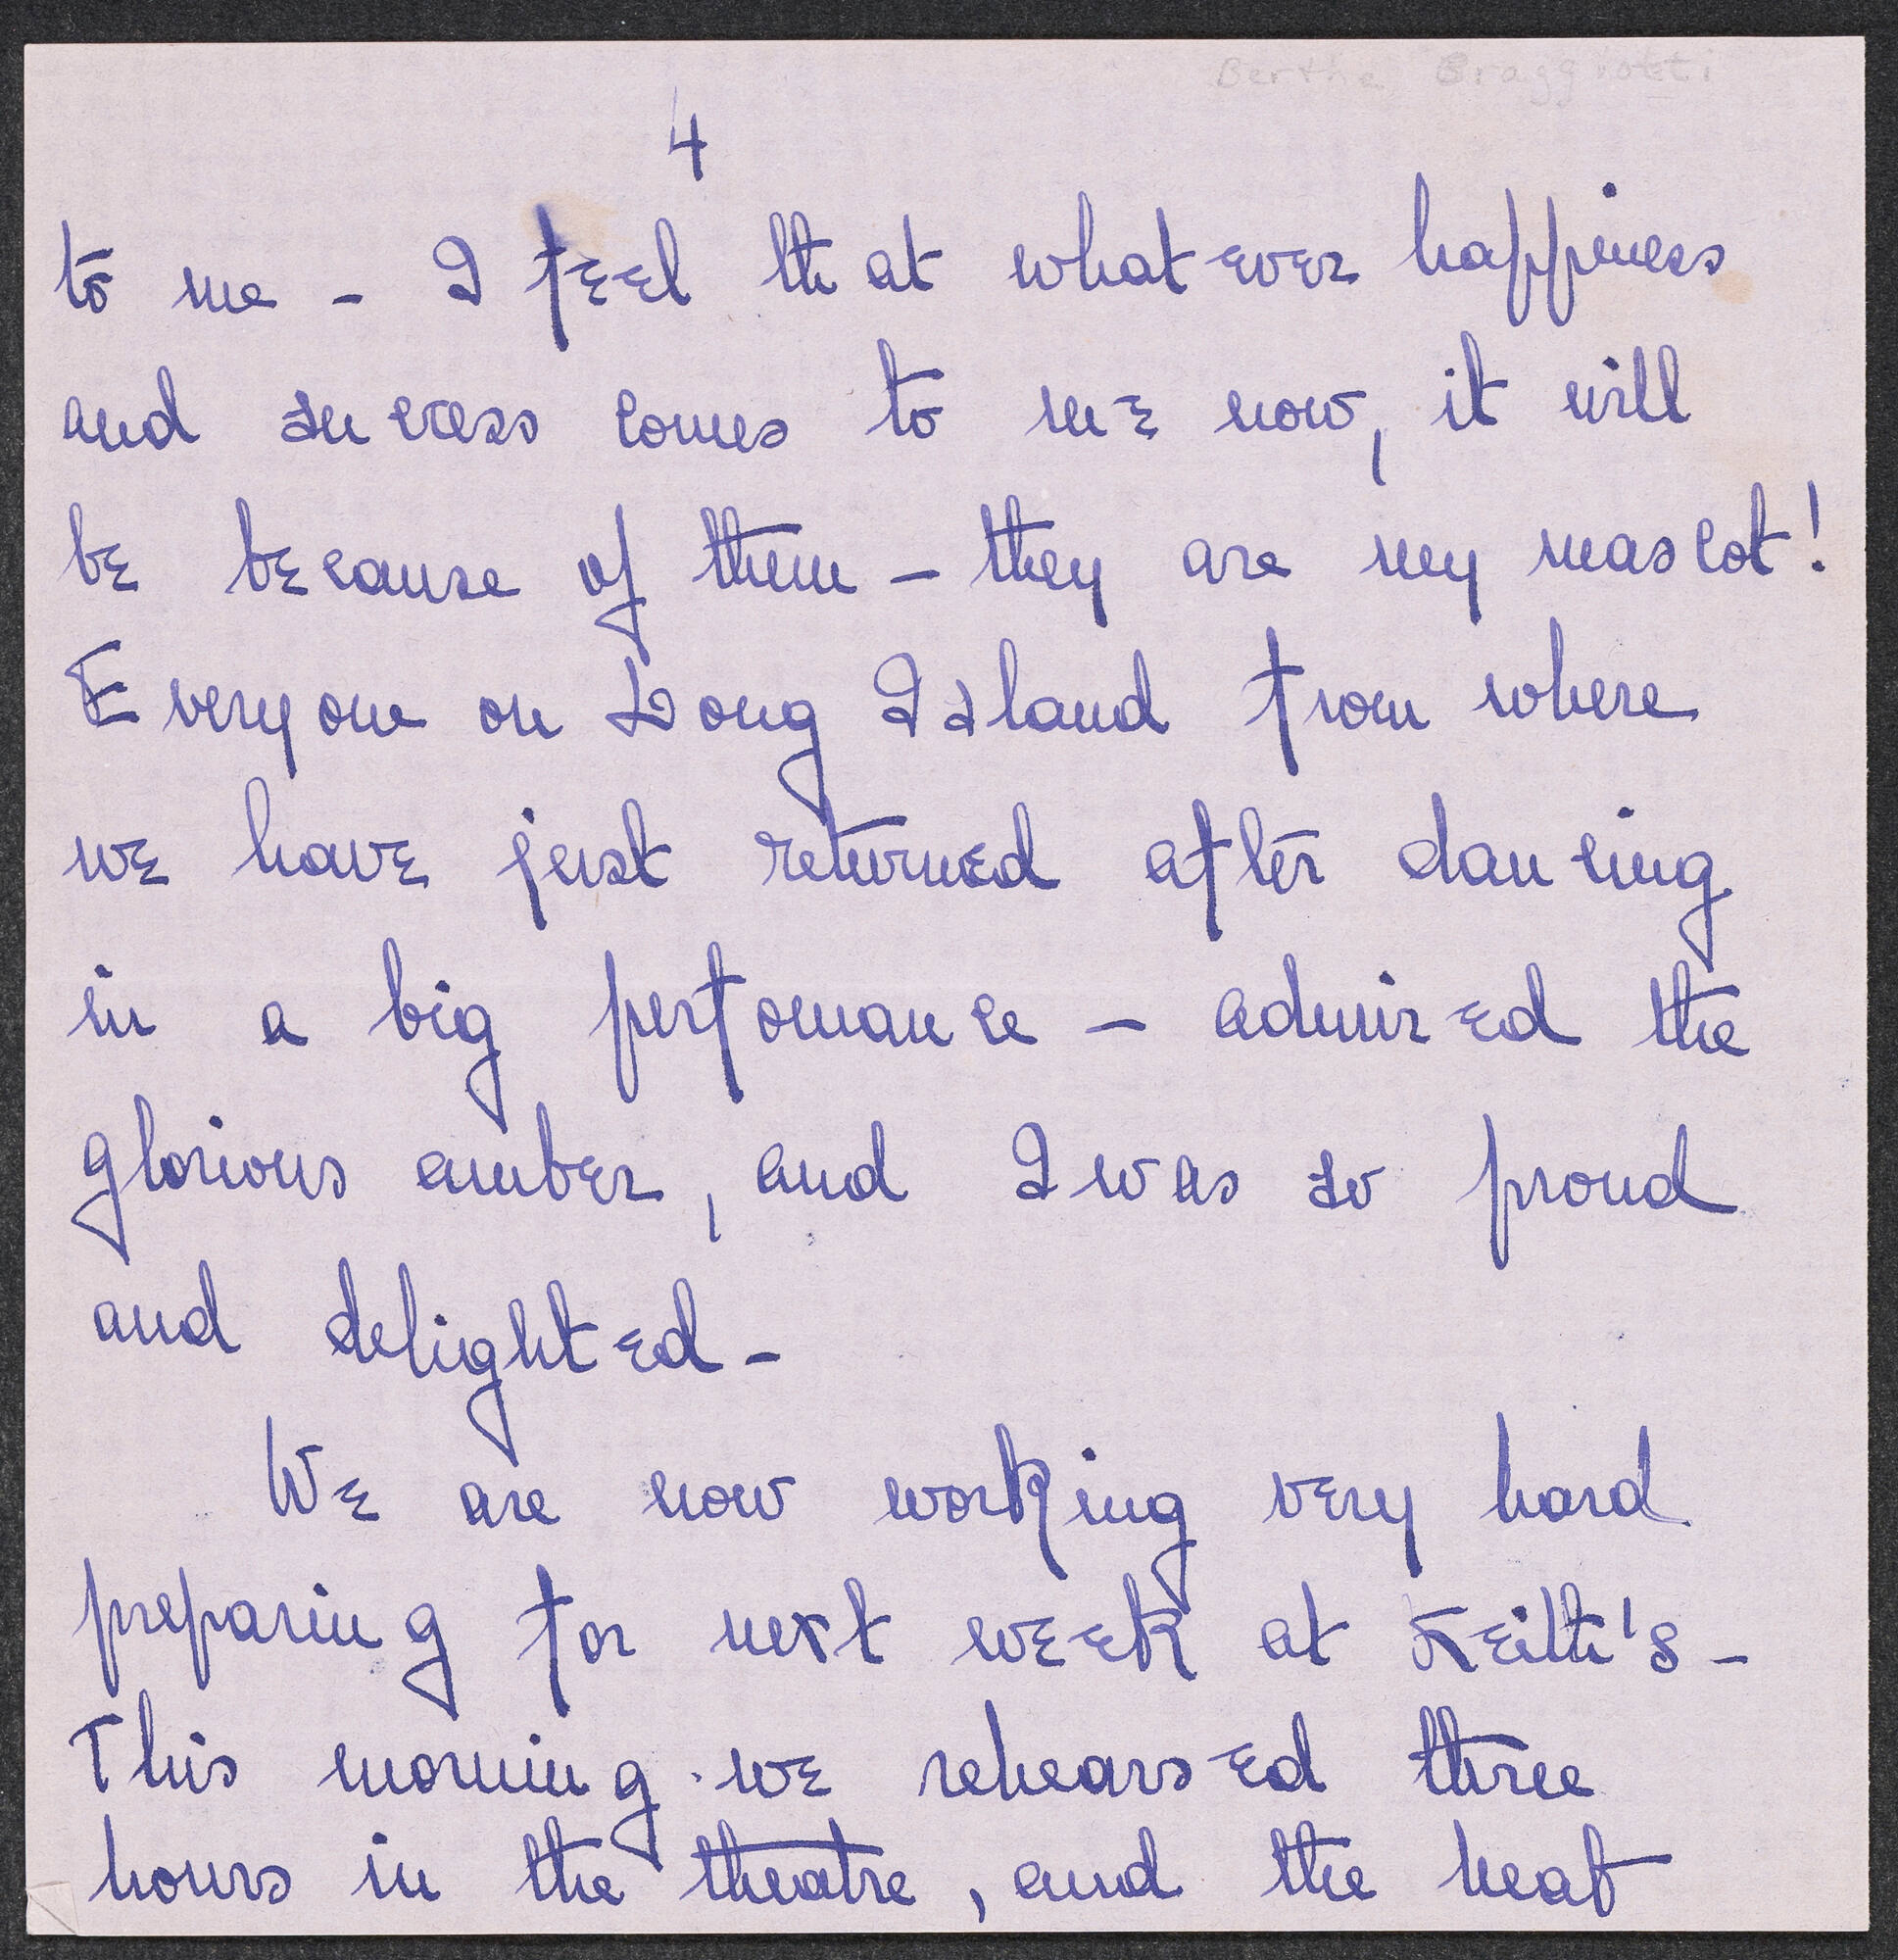 Berthe Braggiotti
4
to me - I feel that whatever happiness
and success comes to me now, it will
be because of them - they are my mascot!
Everyone on Long Island from where
we have just returned after dancing
in a big perfomance - admired the
glorious amber, and I was so proud
and delighted -
We are now working very hard
preparing for next week at Keith's -
This morning we rehearsed three
hours in the theatre, and the heat